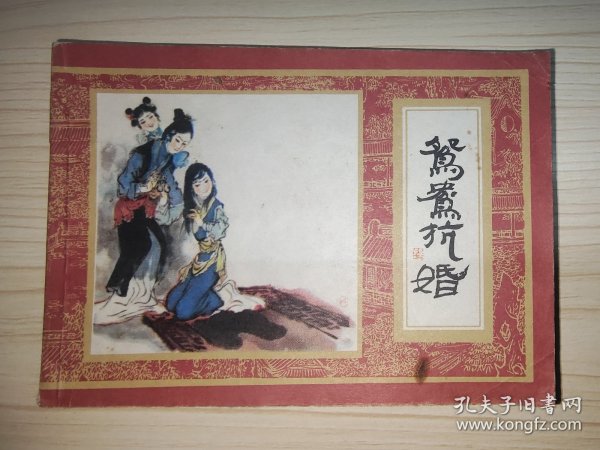 鸳鸯抗婚
孔夫子旧书网
www.kongfz.com